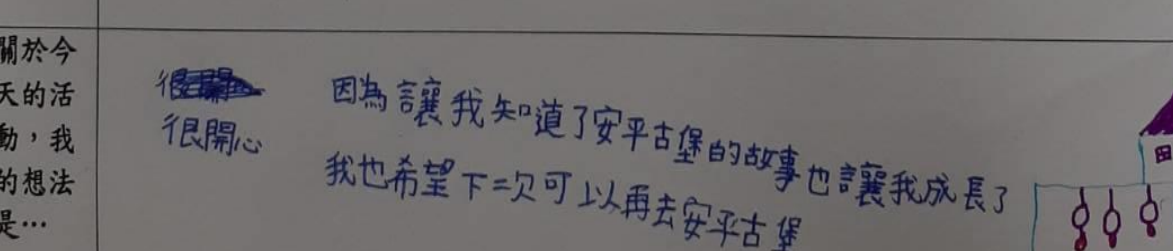 關於今
天的活
動，我
的想法
是…
很開心
因為讓我知道了安平古堡的故事也讓我成長了
我也希望下二次可以再去安平古堡